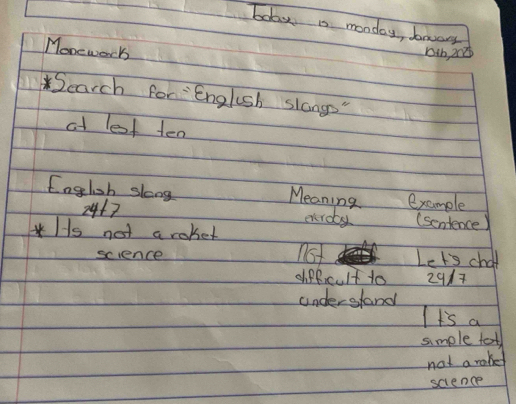 Today is monday, January
10th, 2025
Homework
*Search for "English slangs"
at lest ten
English slang Meaning Example
24/7 (sentence)
* Its not a roket
science
not
difficult to
understand
Let's chat
24/7
It's a
simple tot,
not a roket
science